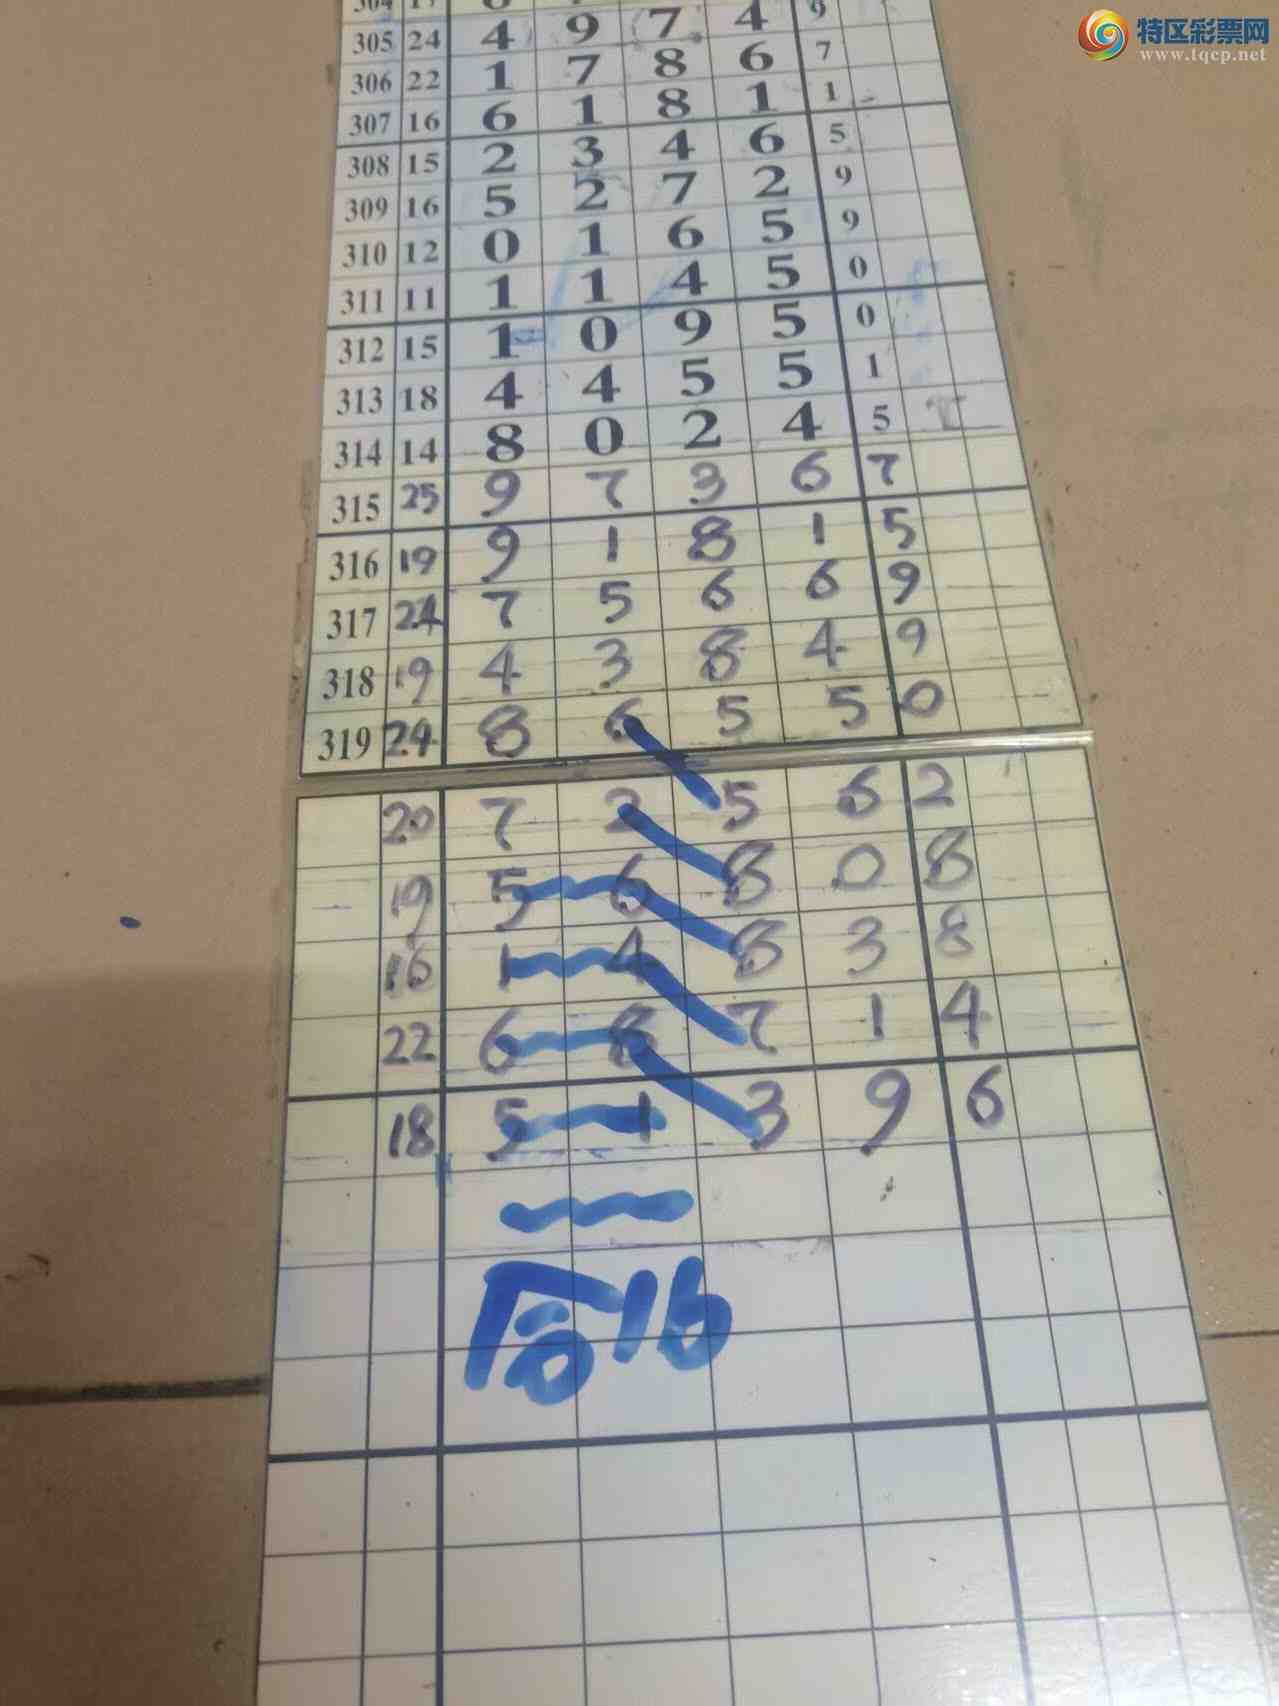 特区彩票网
www.tqcp.net
305 24 4 9 7 4 9
306 22 1 7 8 6 7
307 16 6 1 8 1 1
308 15 2 3 4 6 5
309 16 5 2 7 2 9
310 12 0 1 6 5 9
311 11 1 1 4 5 0
312 15 1 0 9 5 0
313 18 4 4 5 5 1
314 14 8 0 2 4 5
315 25 9 7 3 6 7
316 19 9 1 8 1 5
317 24 7 5 6 6 9
318 19 4 3 8 4 9
319 24 8 6 5 5 0
20 7 2 5 6 2
19 5 6 8 0 8
16 1 4 8 3 8
22 6 8 7 1 4
18 5 1 3 9 6